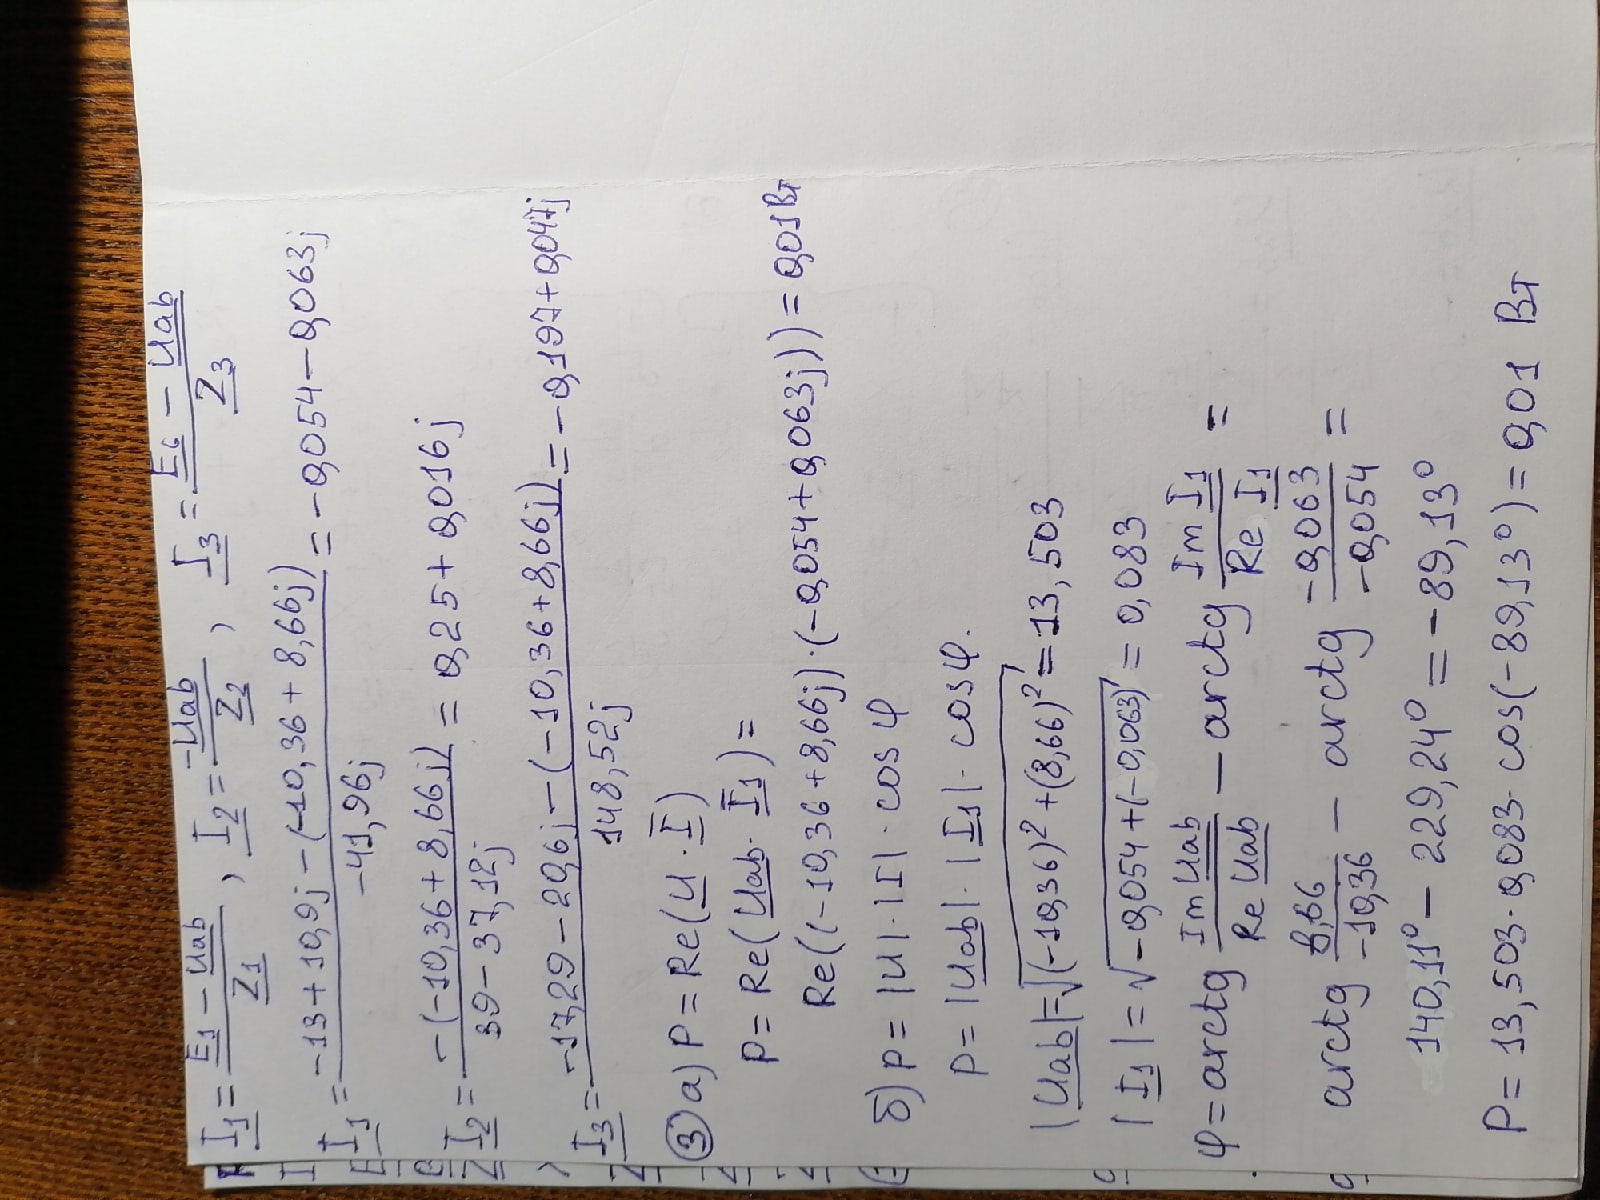 I1 = (E1 − Uab)/Z1 , I2 = −Uab/Z2 , I3 = (E6 − Uab)/Z3
I1 = (−13 + 10,9j − (−10,36 + 8,66j))/(−41,96j) = −0,054 − 0,063j
I2 = −(−10,36 + 8,66j)/(39 − 37,12j) = 0,25 + 0,016j
I3 = (−17,29 − 20,6j − (−10,36 + 8,66j))/(148,52j) = −0,197 + 0,047j
③ а) P = Re(U · I)
P = Re(Uab · I1) =
Re((−10,36 + 8,66j) · (−0,054 + 0,063j)) = 0,01 Вт
б) P = |U| · |I| · cos φ
P = |Uab| · |I1| · cos φ.
|Uab| = √(−10,36)² + (8,66)² = 13,503
|I1| = √−0,054 + (−0,063)² = 0,083
φ = arctg Im Uab/Re Uab − arctg Im I1/Re I1 =
arctg 8,66/−10,36 − arctg −0,063/−0,054 =
= 140,11° − 229,24° = −89,13°
P = 13,503 · 0,083 · cos(−89,13°) = 0,01 Вт